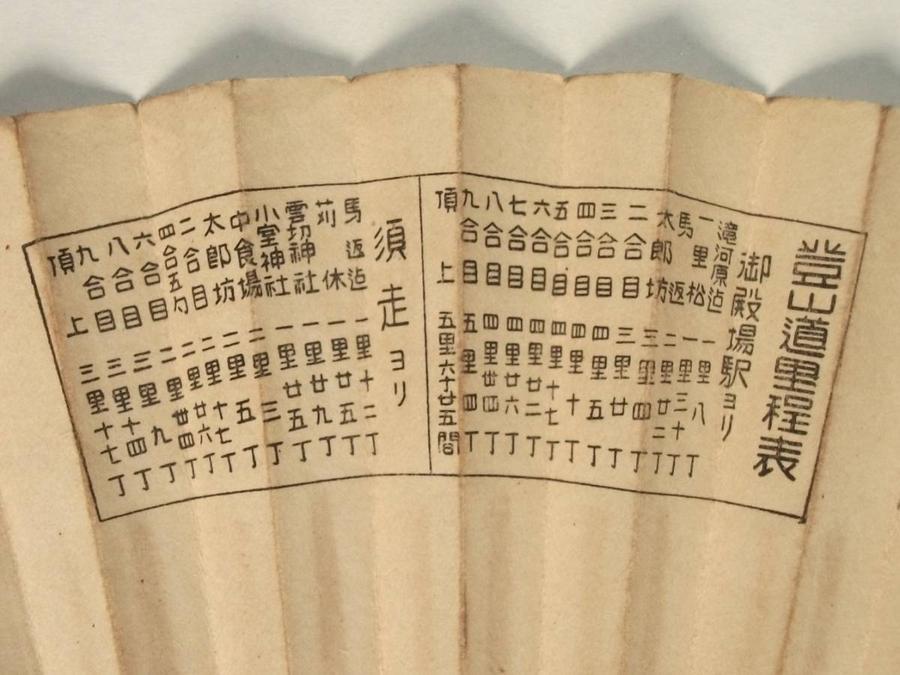 登山道里程表
御殿場駅ヨリ
滝河原迠 一里 八丁
一里松 一里三十丁
馬返 二里廿二丁
太郎坊 三里四丁
二合目 三里廿丁
三合目 四里五丁
四合目 四里十丁
五合目 四里十七丁
六合目 四里廿二丁
七合目 四里廿六丁
八合目 四里丗四丁
九合目 五里四丁
頂上 五里六十廿五間
須走ヨリ
馬返迠 一里十二丁
刈休 一里廿五丁
雲切神社 一里廿九丁
小室神社 一里廿五丁
中食場 二里三丁
太郎坊 二里五丁
二合目 二里十七丁
四合五勺 二里廿六丁
六合目 二里丗四丁
八合目 三里九丁
九合目 三里十四丁
頂上 三里十七丁